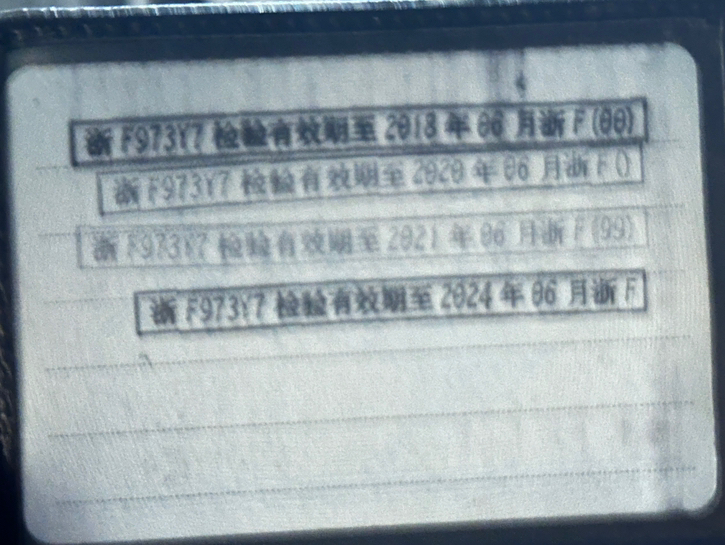 浙F973Y7 检验有效期至2018年06月浙F(00)
浙F973Y7 检验有效期至2020年06月浙F()
浙F973Y7 检验有效期至2021年06月浙F(99)
浙F973Y7 检验有效期至2024年06月浙F